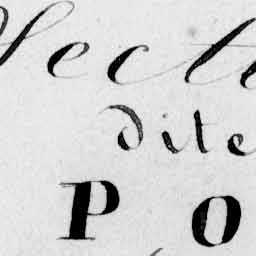 Secti
dite
P O